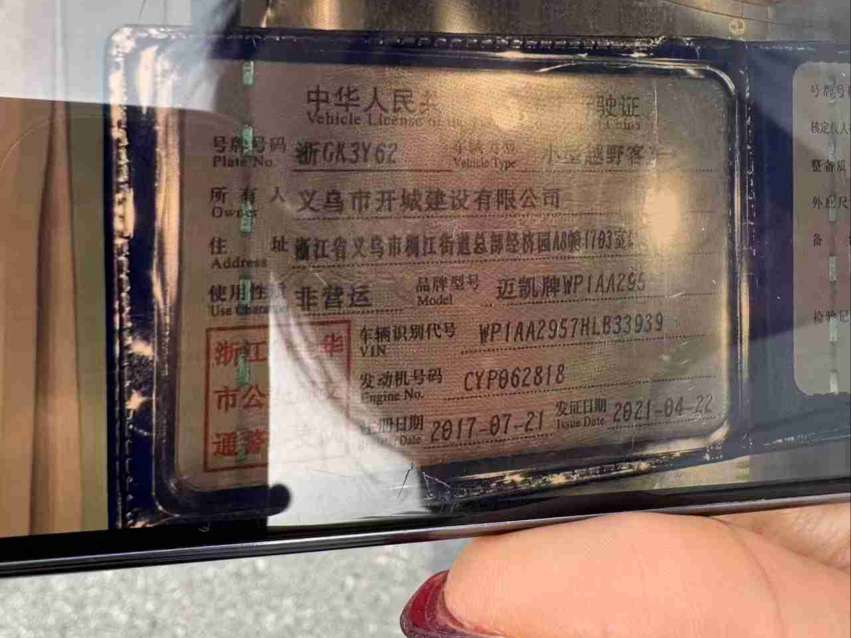 中华人民共
驶证
Vehicle License of the
China
号牌号码
Plate No.
浙GK3Y62
车辆类型
Vehicle Type
小型越野客车
所有人
Owner
义乌市开城建设有限公司
住址
Address
浙江省义乌市稠江街道总部经济园A8幢1703室
使用性质
Use Character
非营运
品牌型号
Model
迈凯牌WP1AA295
车辆识别代号
VIN
WP1AA2957HLB33939
发动机号码
Engine No.
CYP062818
注册日期
Date
2017-07-21
发证日期
Issue Date
2021-04-22
浙江 华
市公
通警 支
号牌号
核定载人
整备质
外廓尺
备
检验记